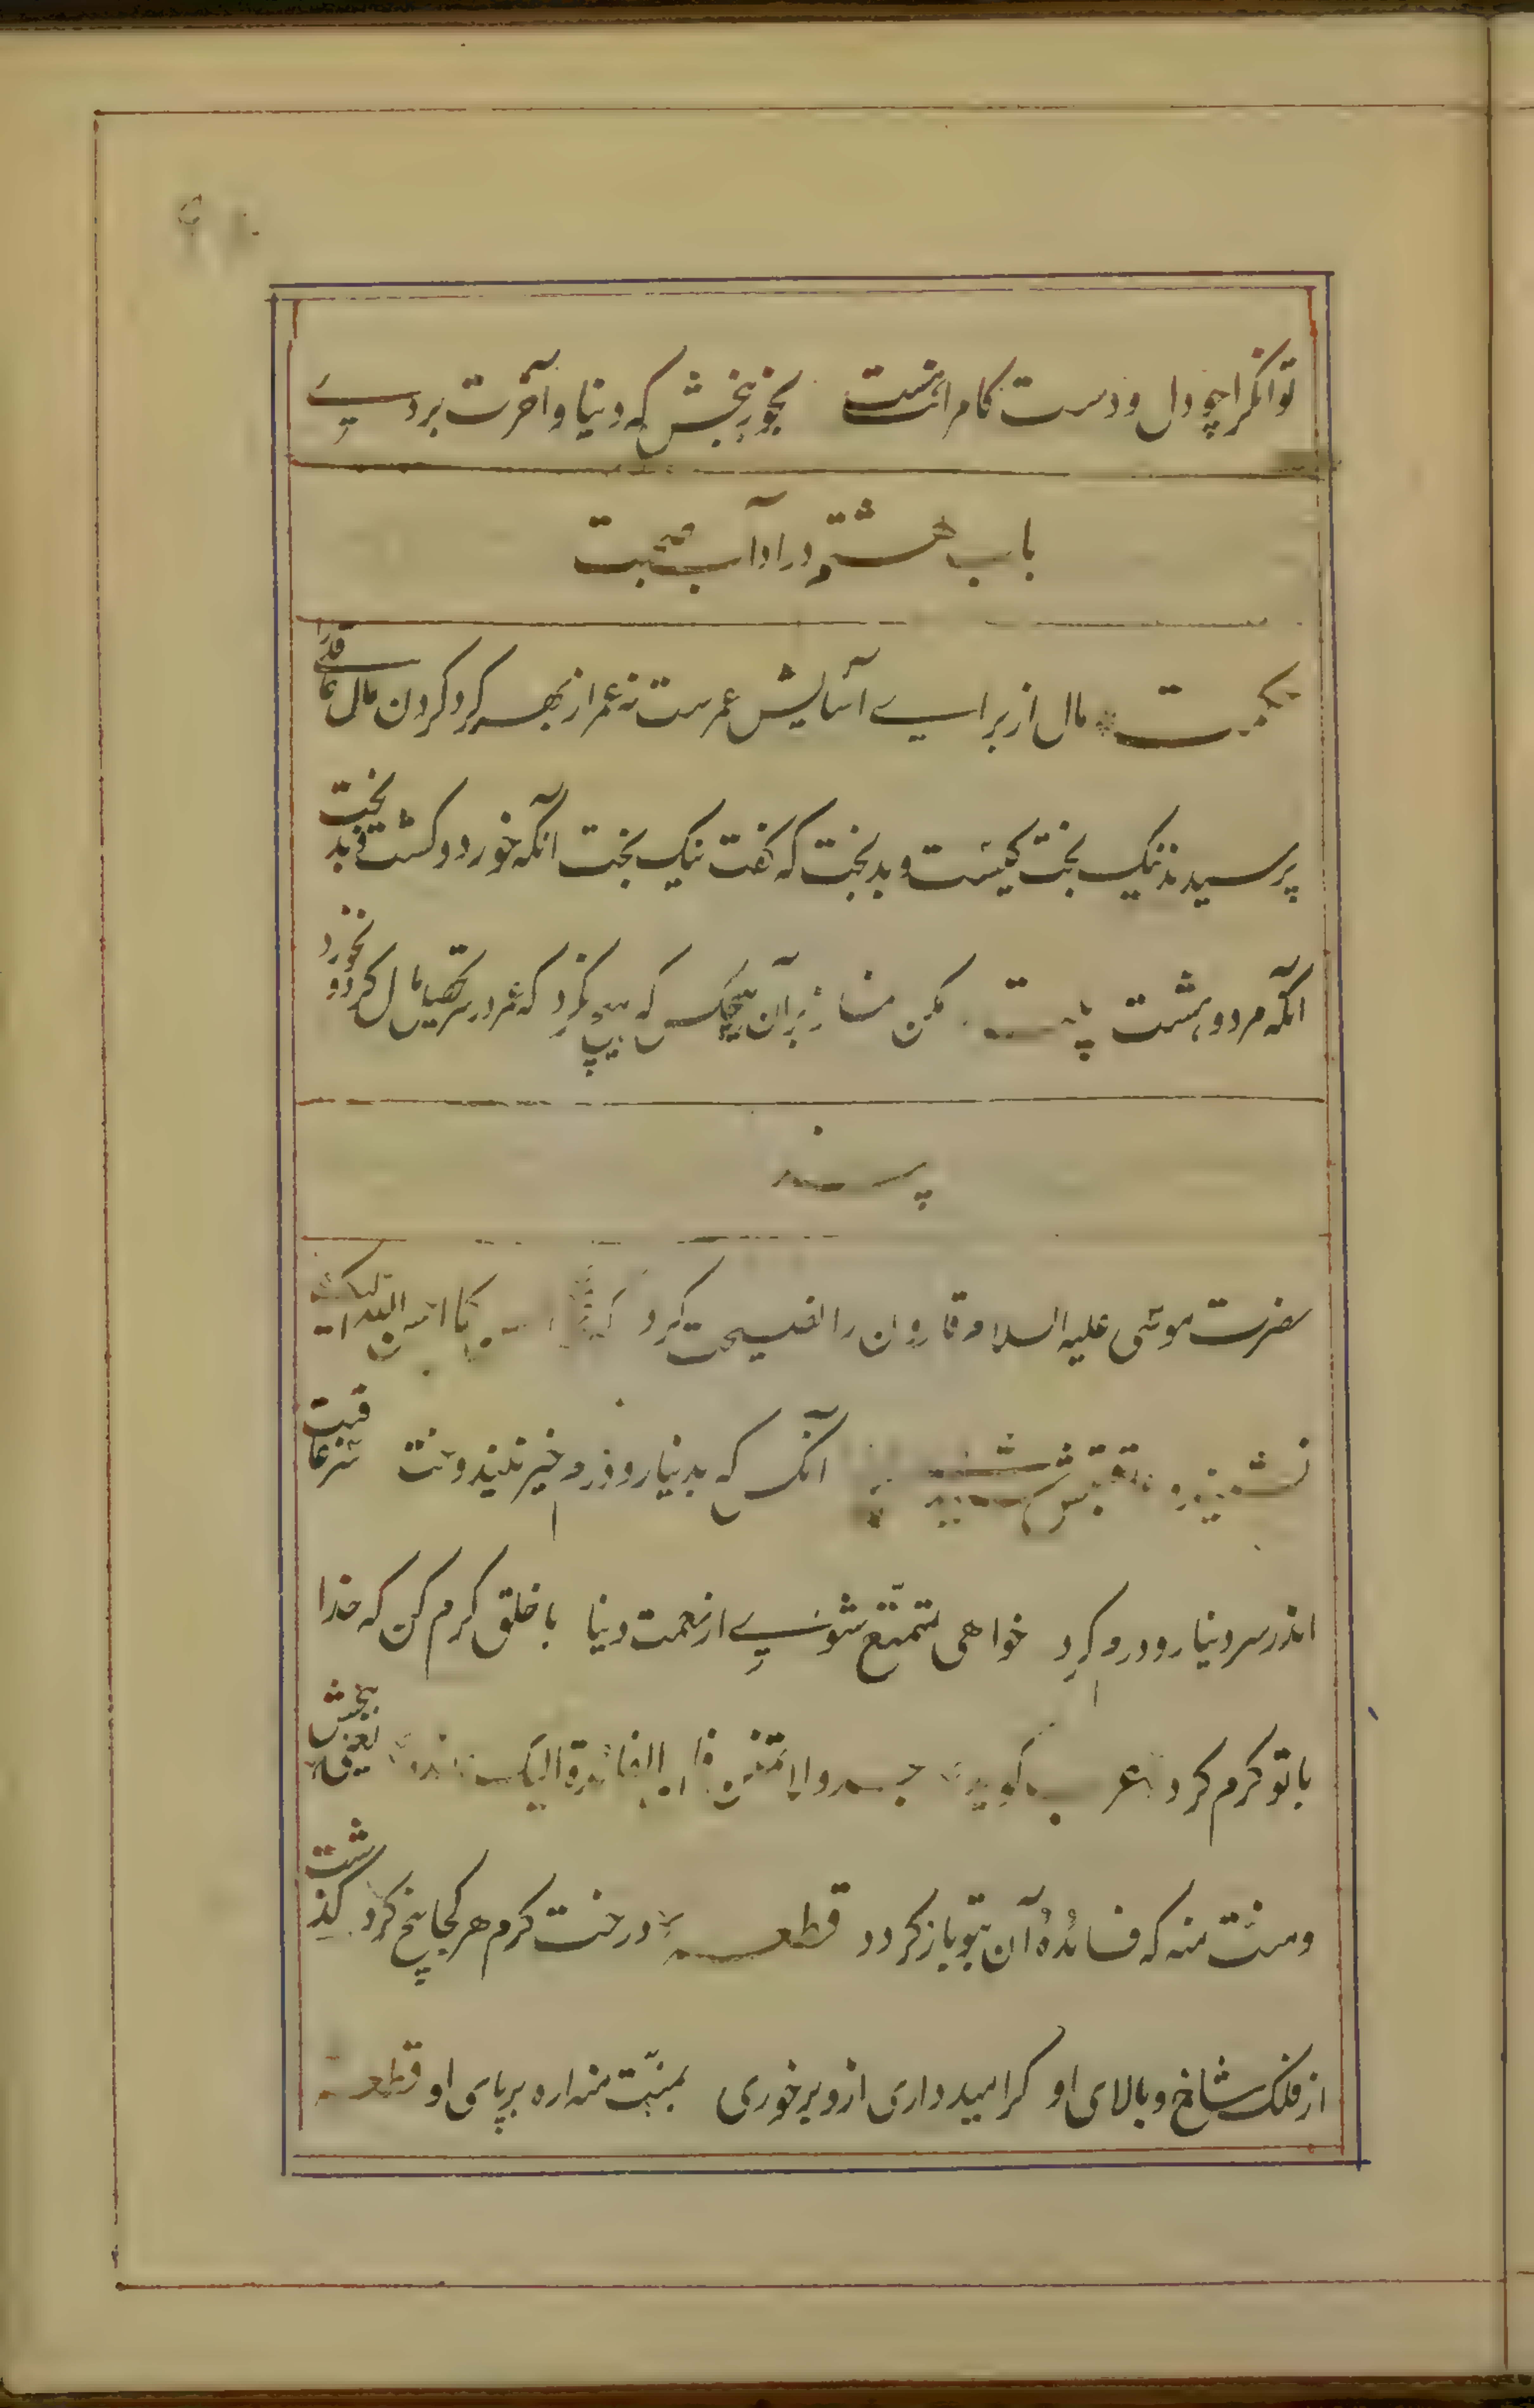 توانگرا چو دل و دست کامرانت هست بخور ببخش که دنیا و آخرت بردے
باب هشتم در اداب صحبت
حکمت مال از برای آسایش عمرست نه عمر از بهر گرد کردن مال عاقلی را
پرسیدند نیک بخت کیست و بدبخت که گفت نیک بخت آنکه خورد و کشت و بدبخت
آنکه مرد و هشت بیت مکن نماز بر آن هیچکس که هیچ نکرد که عمر در سر تحصیل مال کرد و نخورد
پند
حضرت موسی علیه السلام قارون را نصیحت کرد که احسن کما احسن الله الیک
نشنید و عاقبتش شنیدی آنکس که بدینار و درم خیر نیندوخت سر عاقبت
اندر سر دینار و درم کرد خواهی متمتع شوی از نعمت دنیا با خلق کرم کن که خدا
با تو کرم کرد عرب گوید جد ولا تمنن فان الفائدة الیک عائدة یعنی ببخش
و منت منه که فائدهٔ آن بتو باز گردد قطعه درخت کرم هر کجا بیخ کرد گذشت
از فلک شاخ و بالای او گر امید داری ازو بر خوری بمنت منه اره بر پای او قطعه